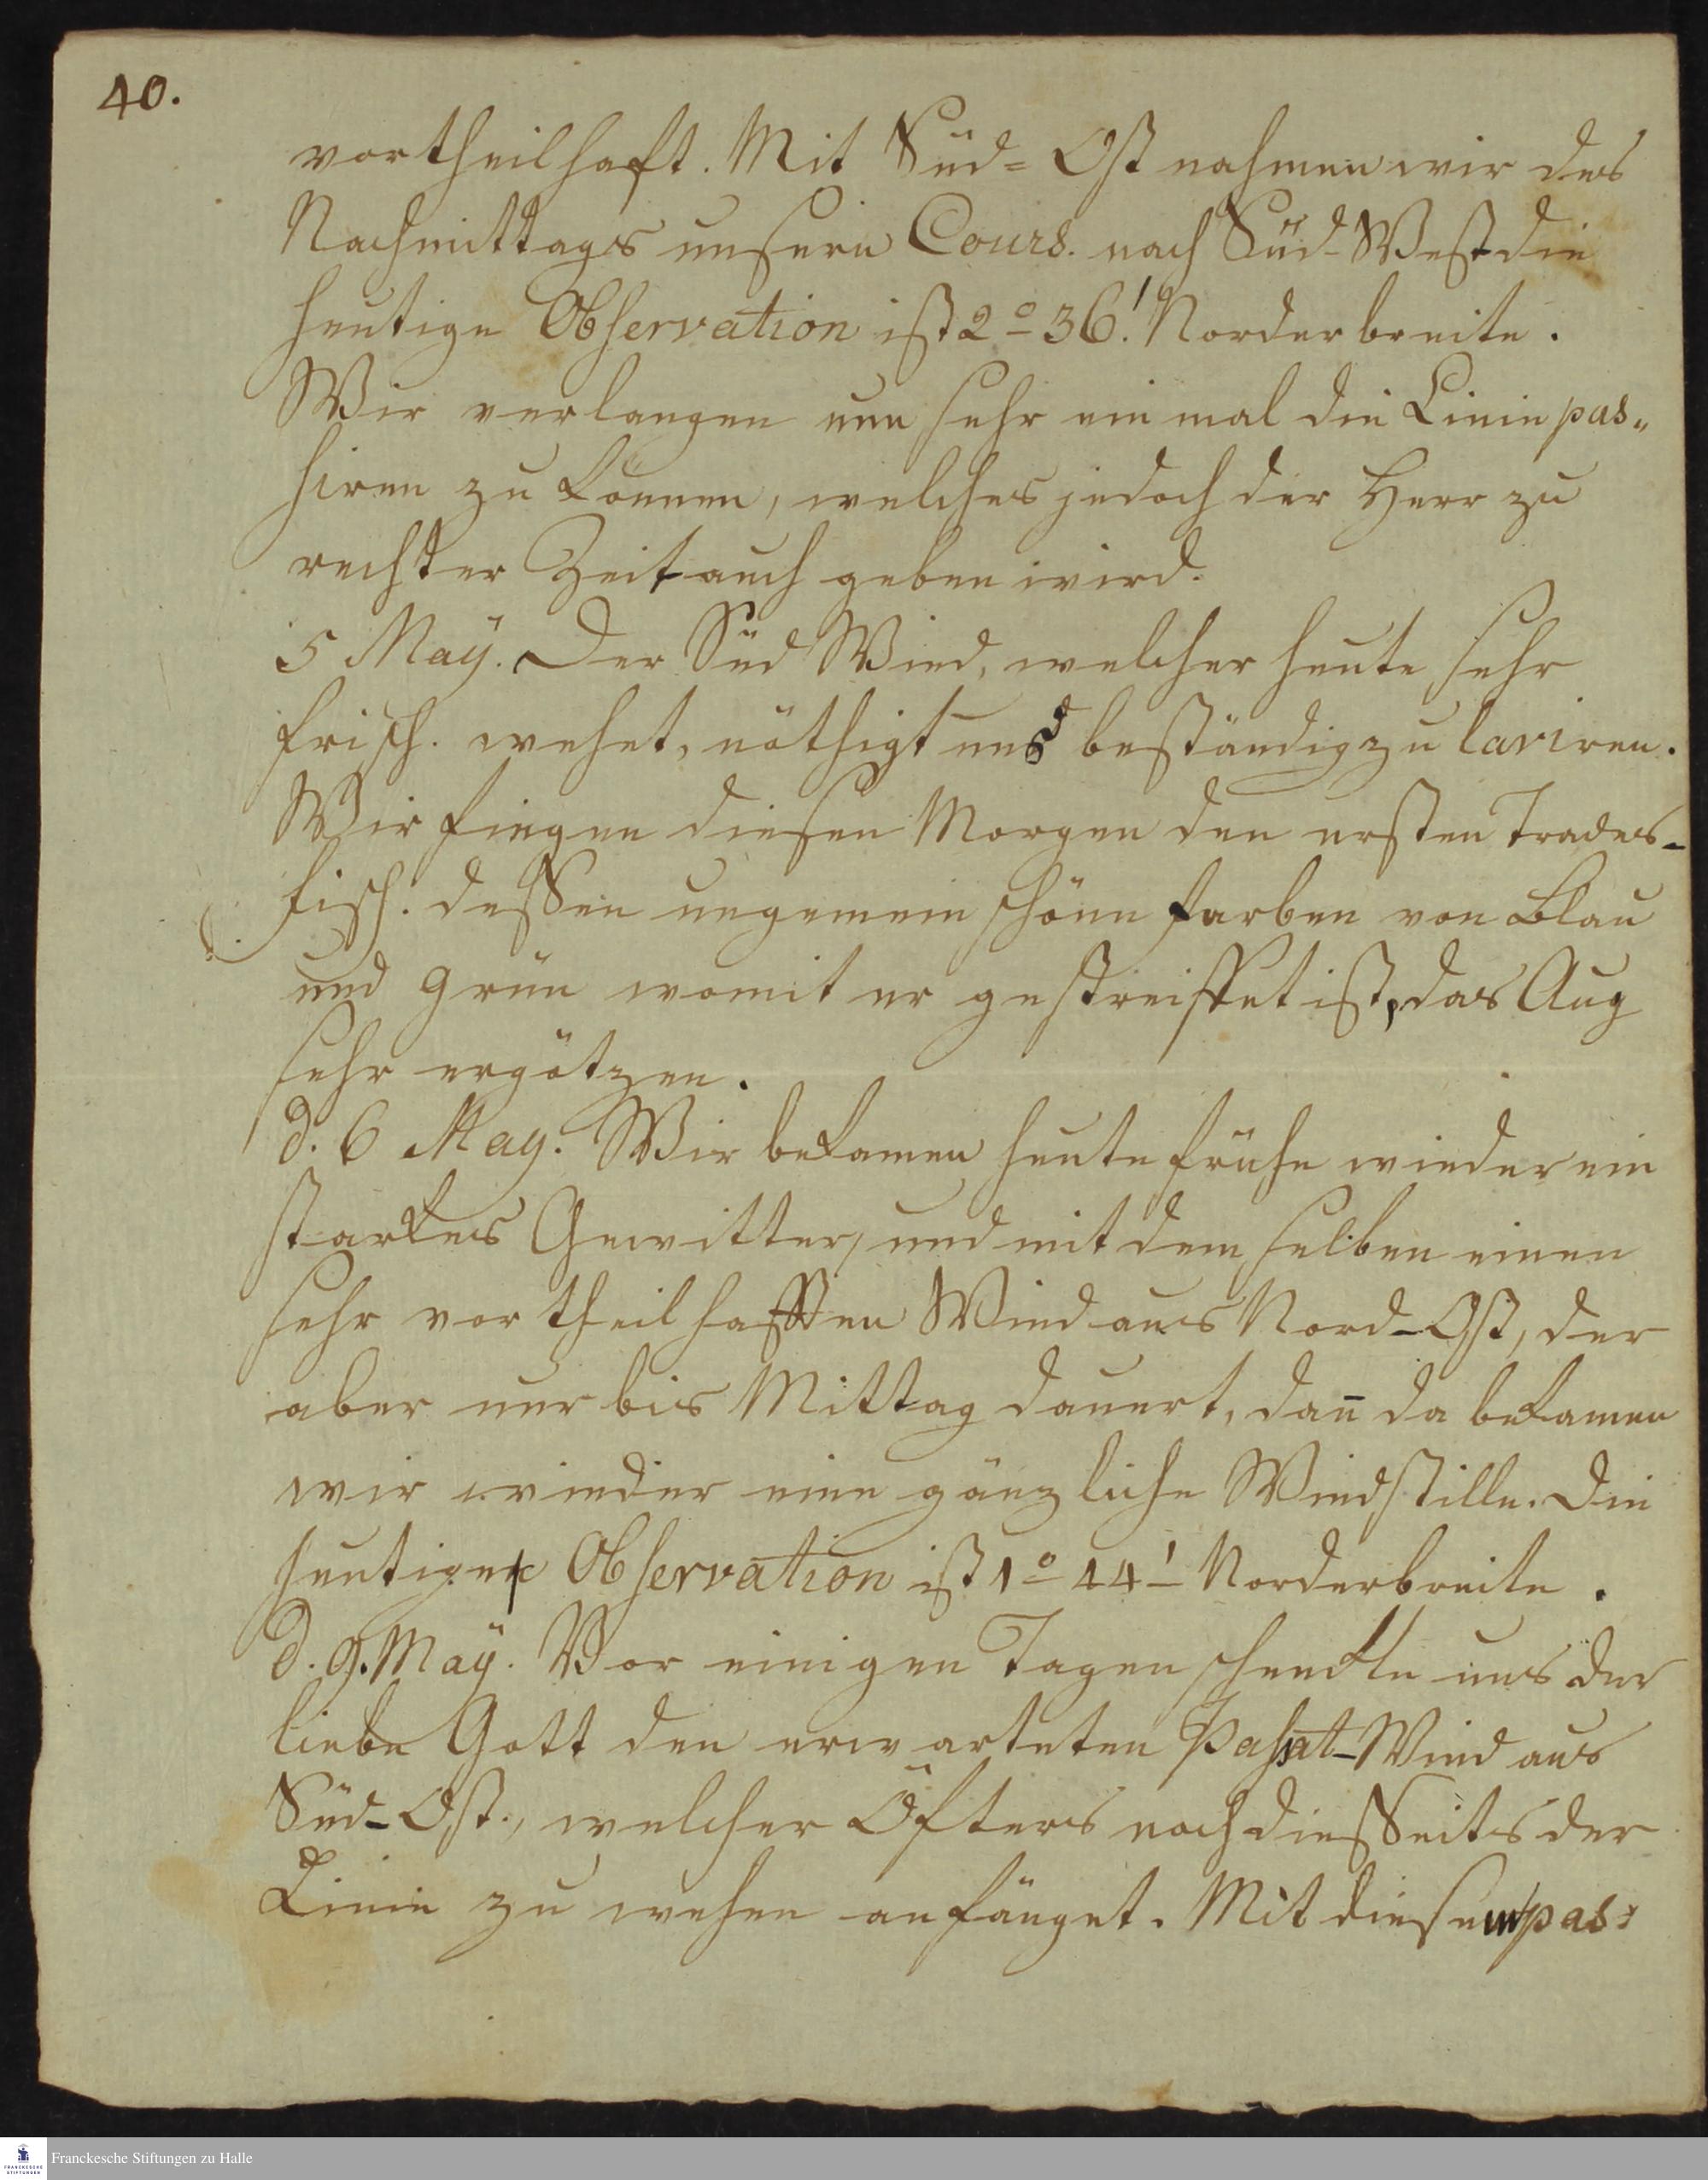 40.
vortheilhaft. Mit Süd=Ost nahmen wir des
Nachmittags unsern Cours. nach Süd-West die
heutige Observation ist 2° 36.' Norderbreite.
Wir verlangen nun sehr ein mal die Linie pas„
siren zu können, welches jedoch der Herr zu
rechter Zeit auch geben wird.
5 Maÿ. Der Süd Wind, welcher heute sehr
frisch. wehet, nöthigt uns beständig zu laviren.
Wir fingen diesen Morgen den ersten Trades-
fisch. dessen ungemein schöne farben von Blau
und Grün womit er gestreiffet ist, das Aug
sehr ergötzen.
d. 6 May. Wir bekamen heute frühe wieder ein
starkes Gewitter, und mit dem selben einen
sehr vortheilhafften Wind aus Nord-Ost, der
aber nur bis Mittag dauert, dan̄ da bekamen
wir wieder eine gänzliche Windstille. Die
heutige Observation ist 1° 44' Norderbreite.
d. 9. Maÿ. Vor einigen Tagen schenkte uns der
liebe Gott den erwarteten Passat-Wind aus
Süd-Ost., welcher Öfters noch diesseits der
Linie zu wehen anfänget. Mit diesem pas:
Franckesche Stiftungen zu Halle
FRANCKESCHE
STIFTUNGEN